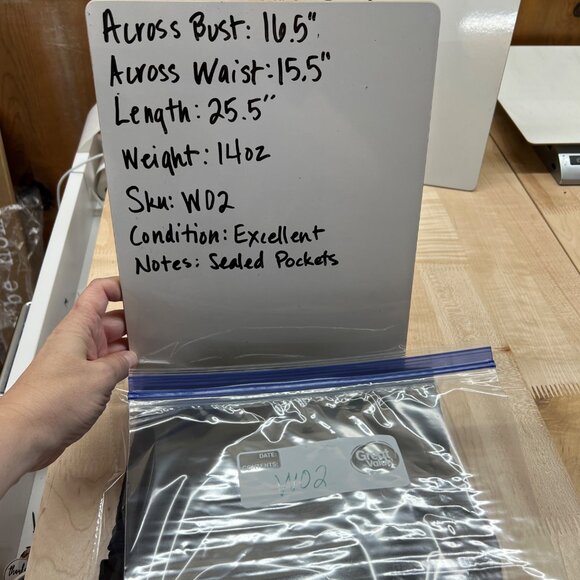 Across Bust: 16.5"
Across Waist: 15.5"
Length: 25.5"
Weight: 14oz
Sku: W02
Condition: Excellent
Notes: Sealed Pockets
DATE:
CONTENTS:
Great Value
W02